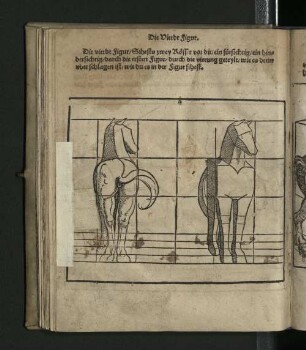 Die Vierde Figur.
Die vierde Figur / Sihestu zwey Rösse vor dir / ein fürsichtig / ein hin
dersichtig / durch die ersten Figur / durch die vierung geteylt / wie es denn
ist / wie du es in der Figur sihest.